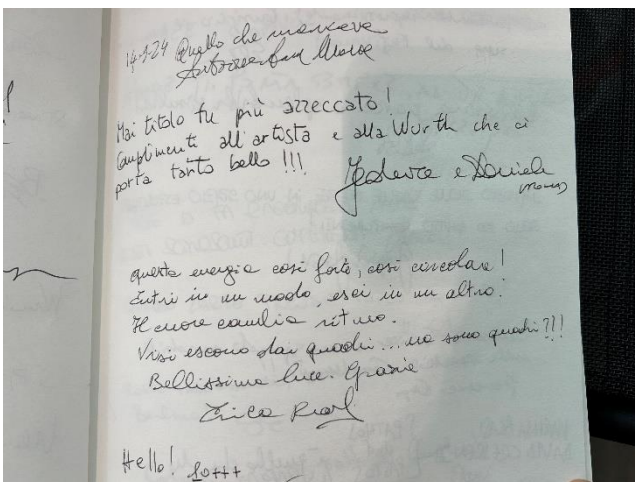 14-1-24 Quello che mancava
Mai titolo fu più azzeccato!
Complimenti all'artista e alla Wurth che ci
porta tanto bello!!!
e Daniele
(Roma)
questa energia così forte, così circolare!
Entri in un modo, esci in un altro.
Il cuore cambia ritmo.
Visi escono dai quadri... ma sono quadri?!!
Bellissima luce. Grazie
Erica
Hello!